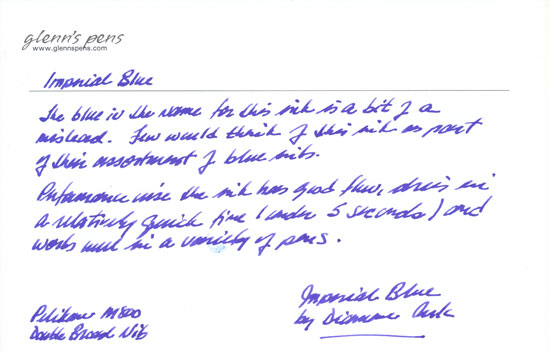 glenn's pens
www.glennspens.com
Imperial Blue
The blue in the name for this ink is a bit of a
mislead. Few would think of this ink as part
of their assortment of blue inks.
Performance wise the ink has good flow, dries in
a relatively quick time (under 5 seconds) and
works well in a variety of pens.
Pelikan M800
Double Broad Nib
Imperial Blue
by Diamine Ink